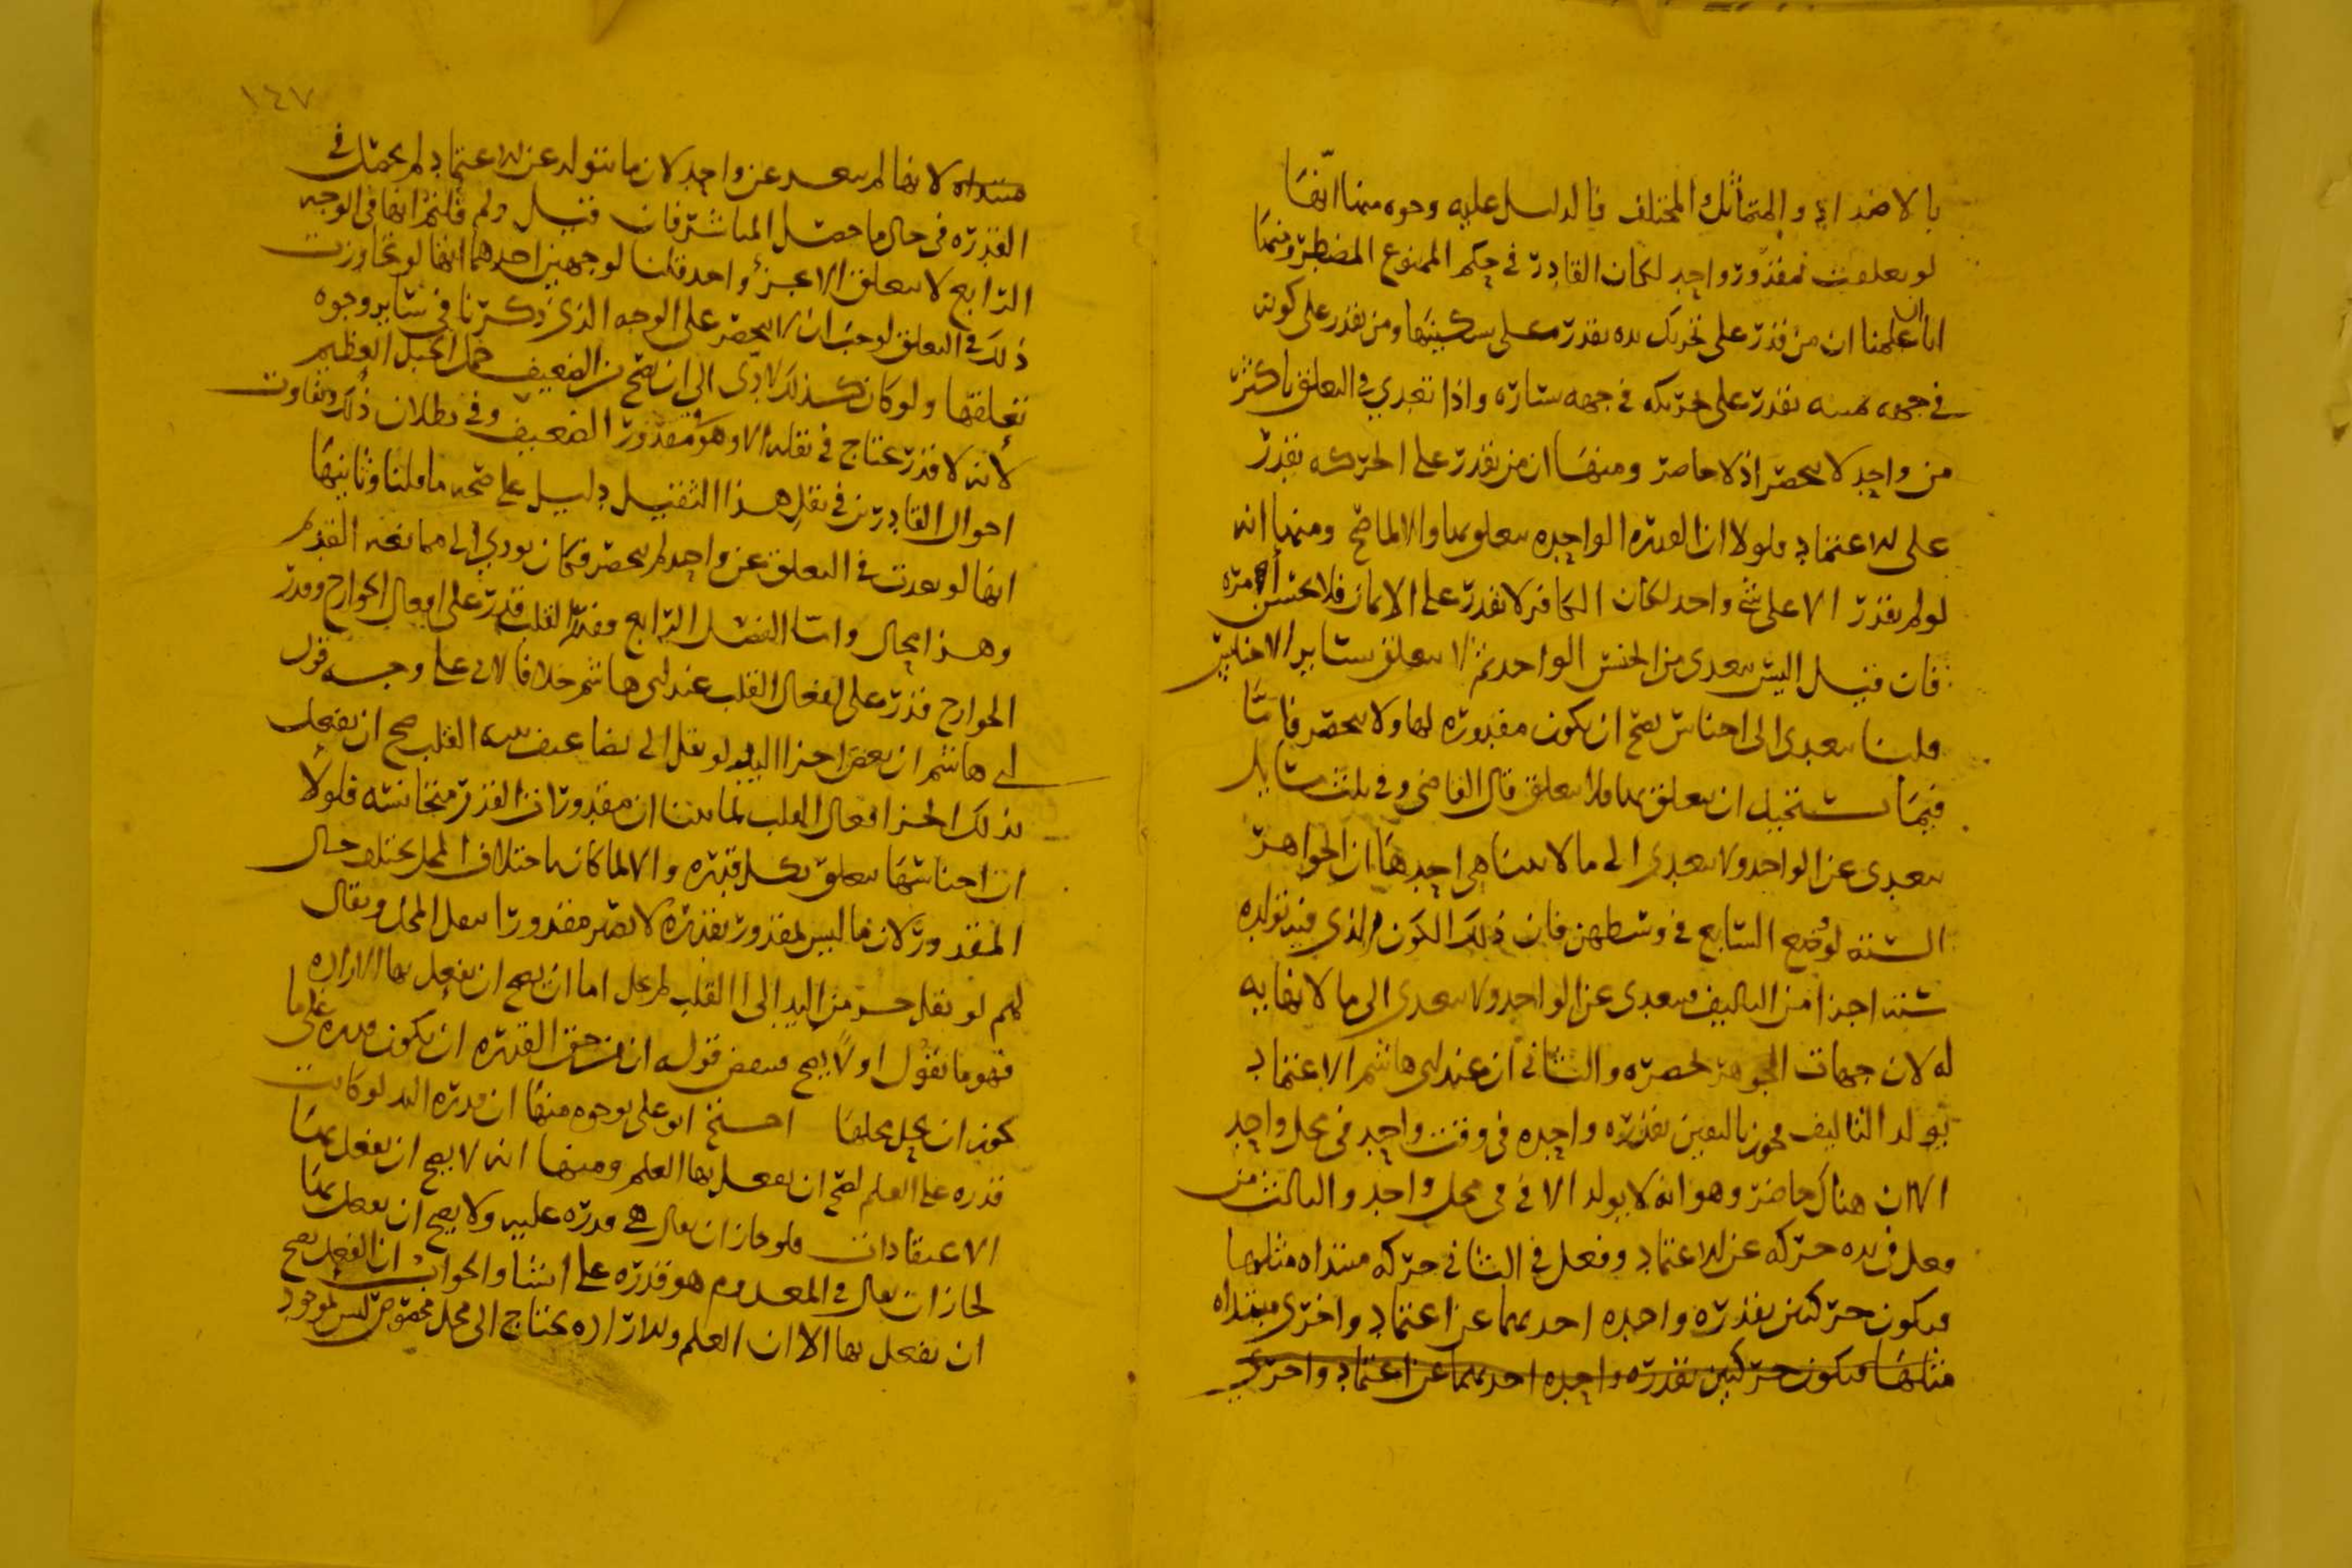 بالاضداد والمتماثل المختلف فالدليل عليه وجوه منها انها
لو تعلقت بمقدور واحد لكان القادر في حكم الممنوع المضطر ومنها
انا علمنا ان من قدر على تحريك يده يقدر على تسكينها ومن يقدر على كونه
في جهه يمنه يقدر على تحريكه في جهه يساره واذا تعدي في التعلق باكثر
من واحد لا ينحصر اذ لا حاصر ومنها ان من يقدر على الحركه يقدر
على الاعتماد فلولا ان القدره الواحده يتعلق بها والا لما صح ومنها انه
لو لم يقدر الا على شي واحد لكان الكافر لا يقدر على الايمان فلا يحسن امره
فان قيل اليس يتعدى من الجنس الواحد ثم لا يتعلق بساير الاجناس
قلنا يتعدى الى اجناس يصح ان يكون مقدوره لها ولا ينحصر فاما
فيما يستحيل ان يتعلق بها فلا يتعلق قال القاضي وفي ثلث مسايل
يتعدى عن الواحد ولا يتعدى الى ما لا يتناهى احدها ان الجواهر
السته لو وضع السابع في وسطهن فان ذلك الكون الذي فيه تولده
سته اجزا من التاليف فيتعدى عن الواحد ولا يتعدى الى ما لا نهايه
له لان جهات الجوهر تحصره والثاني ان عند ابي هاشم الاعتماد
يولد التاليف بقدره واحده في وقت واحد في محل واحد
الا ان هناك حاصر وهو انه لا يولد الا في محل واحد والثالث من
فعل في يده حركه عن الاعتماد وفعل في الثاني حركه مبتداه مثلها
فيكون حركتين بقدره واحده احديهما عن اعتماد واخرى مبتداه
مثلها فيكون حركتين بقدره واحده احديهما عن اعتماد واخرى
١٤٧
مبتداه لانها لم يتعد عن واحد لان ما يتولد عن الاعتماد لم يحصل في
القدره في حال ما حصل المباشر فان قيل ولم قلتم انها في الوجه
الرابع لا يتعلق الا بجزء واحد قلنا لوجهين احدهما انها لو تجاوزت
ذلك في التعلق لوجب ان لا ينحصر على الوجه الذي ذكرنا في ساير وجوه
تعلقها ولو كان كذلك لادى الى ان يصح من الضعيف حمل الجبل العظيم
لانه لا قدر يحتاج في نقله الا وهو مقدور الضعيف وفي بطلان ذلك وتفاوت
احوال القادرين في نقل هذا الثقيل دليل على صحه ما قلنا وثانيها
انها لو تعدت في التعلق عن واحد لم ينحصر فكان يودي الى ممانعه القديم
وهذا محال واما الفصل الرابع فقدر القلب قدر على افعال الجوارح وقدر
الجوارح قدر على افعال القلب عند ابي هاشم خلافا لابي علي وجه قول
ابي هاشم ان بعض اجزا اليد لو نقل الى تضاعيف بنيه القلب صح ان يفعل
بذلك الجزا افعال القلب لما بينا ان مقدورات القدر متجانسه فلولا
ان اجناسها يتعلق بكل قدره والا لما كان باختلاف المحل يختلف حال
المقدور لان ما ليس بمقدور بقدره لا يصير مقدورا بنقل المحل ويقال
لهم لو نقل جزء من اليد الى القلب لم يخل اما ان يصح ان يفعل بها الاراده
فهو ما نقول او لا يصح فينقض قوله ان من حق القدره ان يكون قدره على ما
يجوز ان يحل محلها احتج ابو علي بوجوه منها ان قدره اليد لو كانت
قدره على العلم لصح ان يفعل بها العلم ومنها انه لا يصح ان يفعل بها
الاعتقادات فلو جاز ان يقال هي قدره عليه ولا يصح ان يفعل بها
لجاز ان يقال في المعدوم هو قدره على اشيا والجواب ان الفعل يصح
ان يفعل بها الا ان العلم والاراده يحتاج الى محل مخصوص ليس بموجود